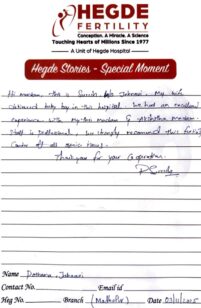 HEGDE
FERTILITY
Conception. A Miracle. A Science
Touching Hearts of Millions Since 1977
A Unit of Hegde Hospital
Hegde Stories - Special Moment
Hi madam, this is Suresh w/o Jahnavi, My wife
delivered baby boy in this hospital. We had an excellent
experience with mythri madam &
Staff is professional, we strongly recommend this fertility
Centre
Thank you for your Co-operation.
Name Jahnavi
Contact No. Email id
Heg No. Branch (Madhapur) Date 03/11/2025